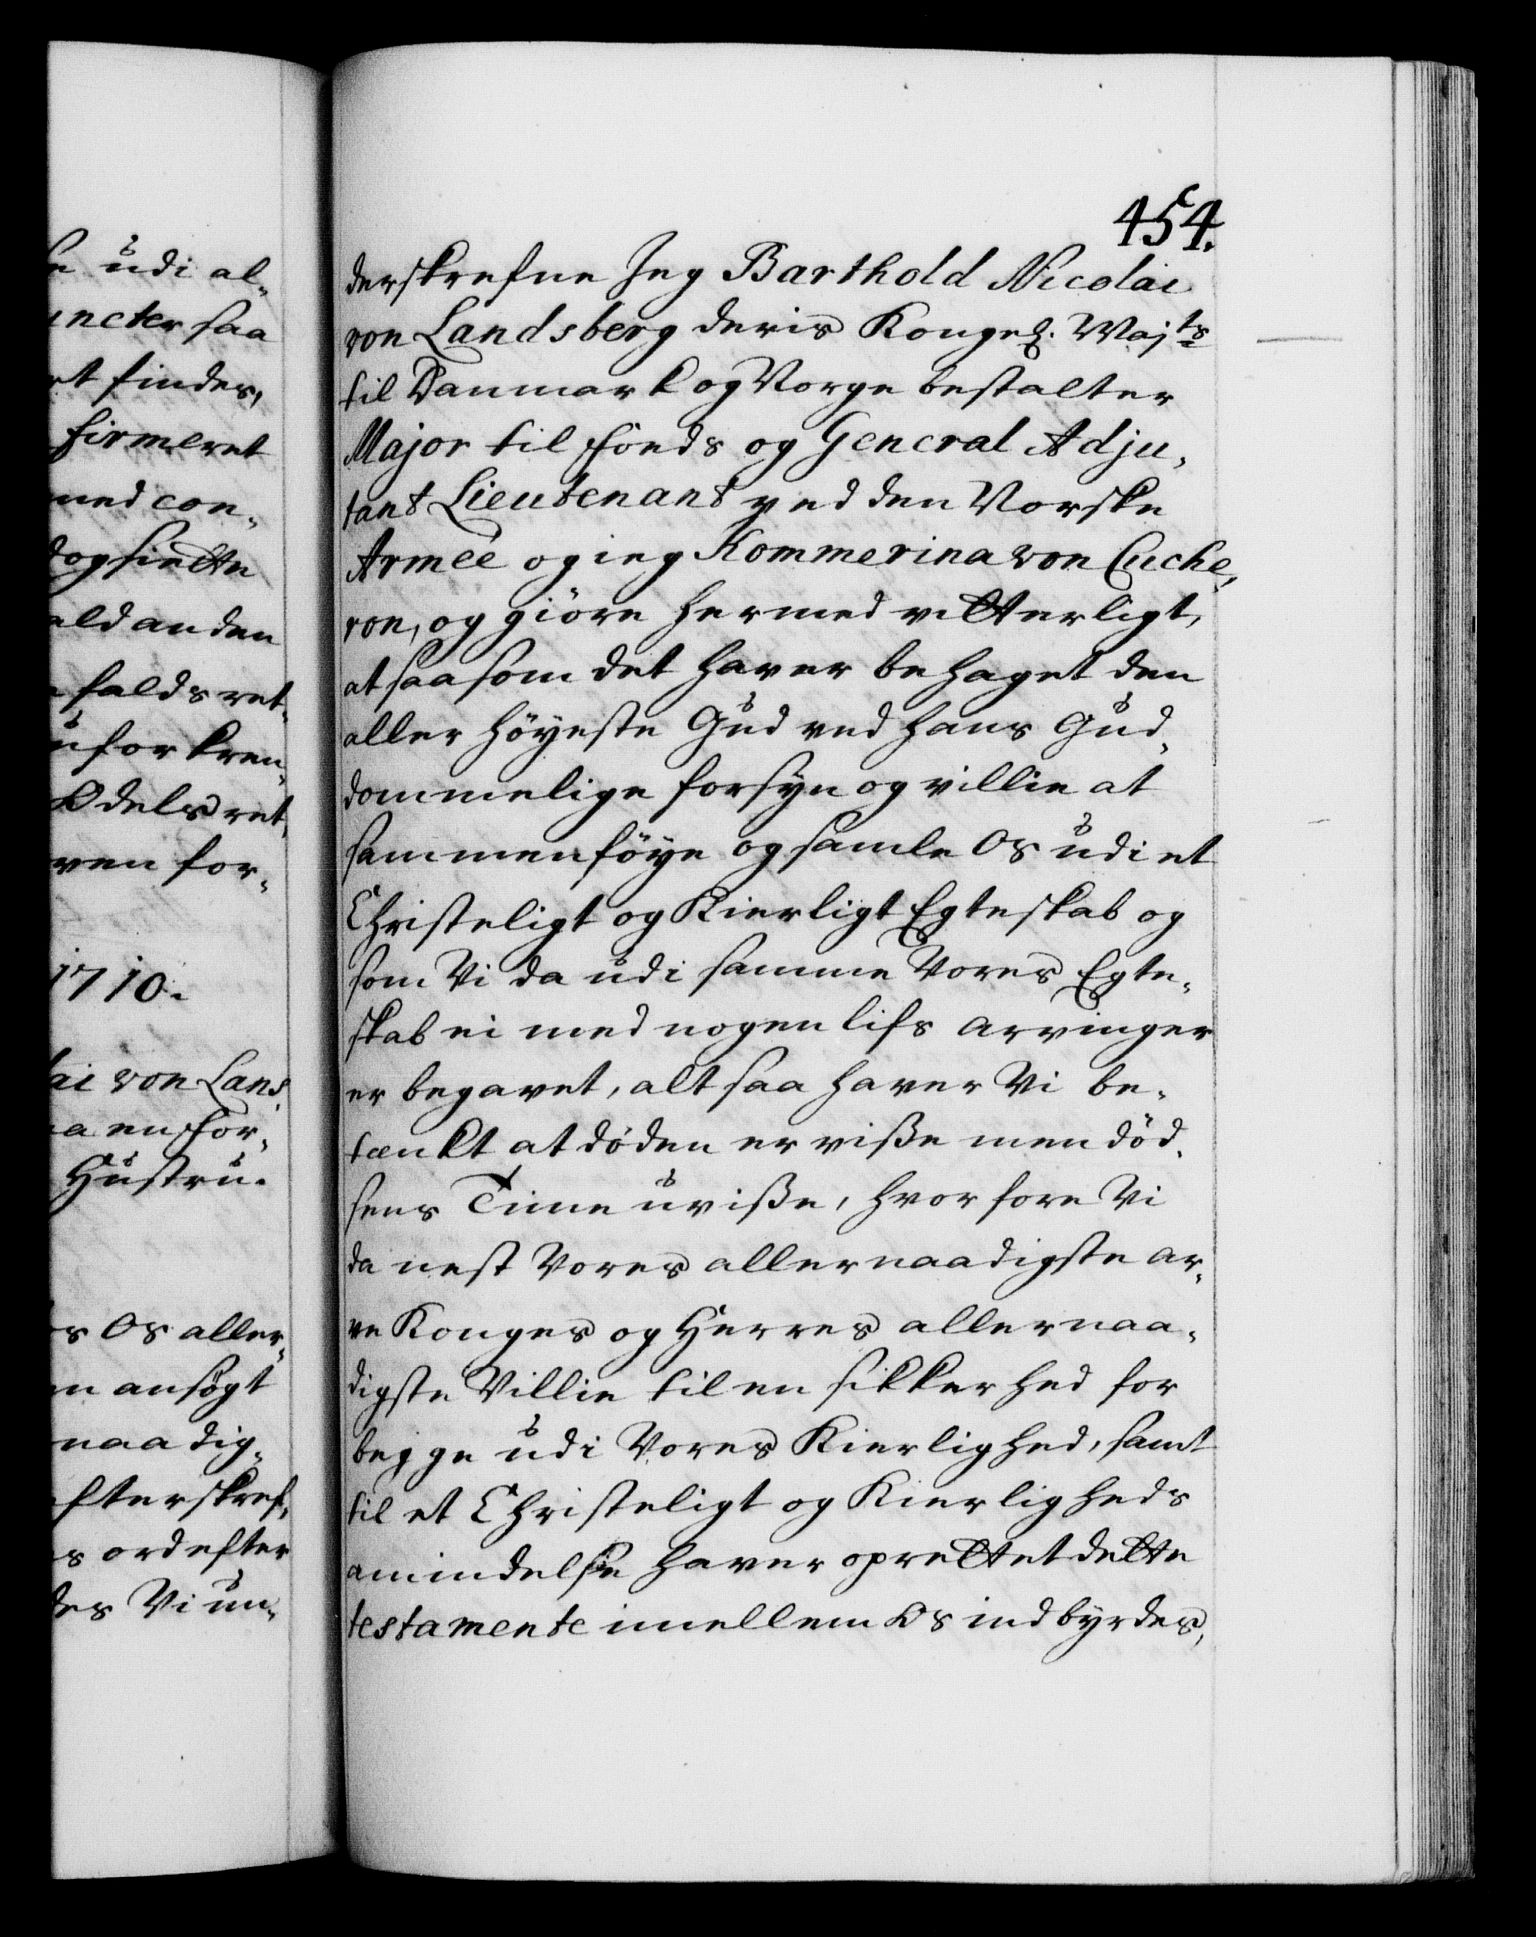 e udi al-
uncter saa
rt findes,
firmeret
med con-
dog sin Ette
ald anden
falds ret-
uforkren-
Odels ret,
ven for-
1710.
lai von Lans-
a en for-
Hustru.
s Os aller-
n ansøgt
naadig-
efterskref-
s ord efter
des Vi un-
454.
derskrefne Jeg Barthold Nicolai
von Landsberg deris Kongel. Majts
til Danmark og Norge bestalter
Major til fods og General Adju-
tant Lieutenant ved den Norske
Armée og ieg Kommerina von Cuche-
ron, og giöre hermed vitterligt,
at saasom det haver behaget den
aller höyeste Gud ved hans Gud-
dommelige forsyn og villie at
sammenföye og samle Os udi et
Christeligt og Kierligt Egteskab og
som Vi da udi samme Vores Egte-
skab ei med nogen lifs arvinger
er begavet, alt saa haver Vi be-
tænkt at döden er viße men död-
sens Time uviße, hvorfore Vi
da nest Vores allernaadigste ar-
ve Konges og Herres allernaa-
digste Villie til en sikkerhed for
begge udi Vores Kierlighed, samt
til et Christeligt og Kierligheds
amindelse haver oprettet dette
testamente imellem Os indbyrdes,